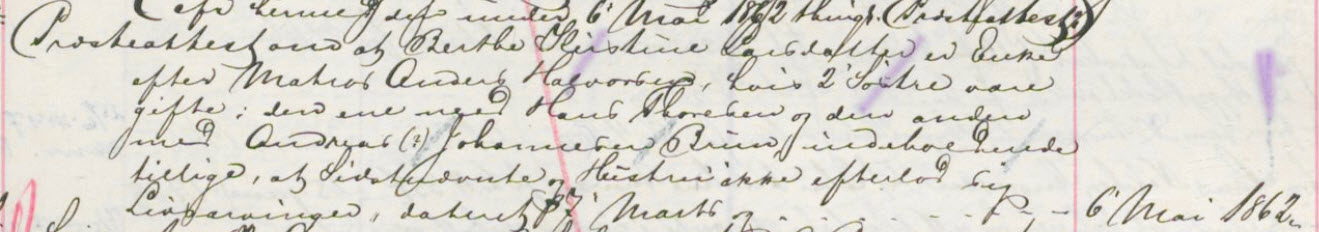 (efr. hermed def under 6' Mai 1862 thingl. Præsteattest:)
(Præsteattest om at Berthe Kirstine Larsdatter er Enke
efter Matros Anders Halvorsen, hvis 2' Søstre vare
gifte: den ene med Hans Thoresen og den anden
med Andreas (?) Johannesen Bruun, indeholdende
tillige, at Sidstnævnte og Hustru ikke efterlod sig
Livsarvinger, dateret 7' Marts og - - - - - - - - 6' Mai 1862.